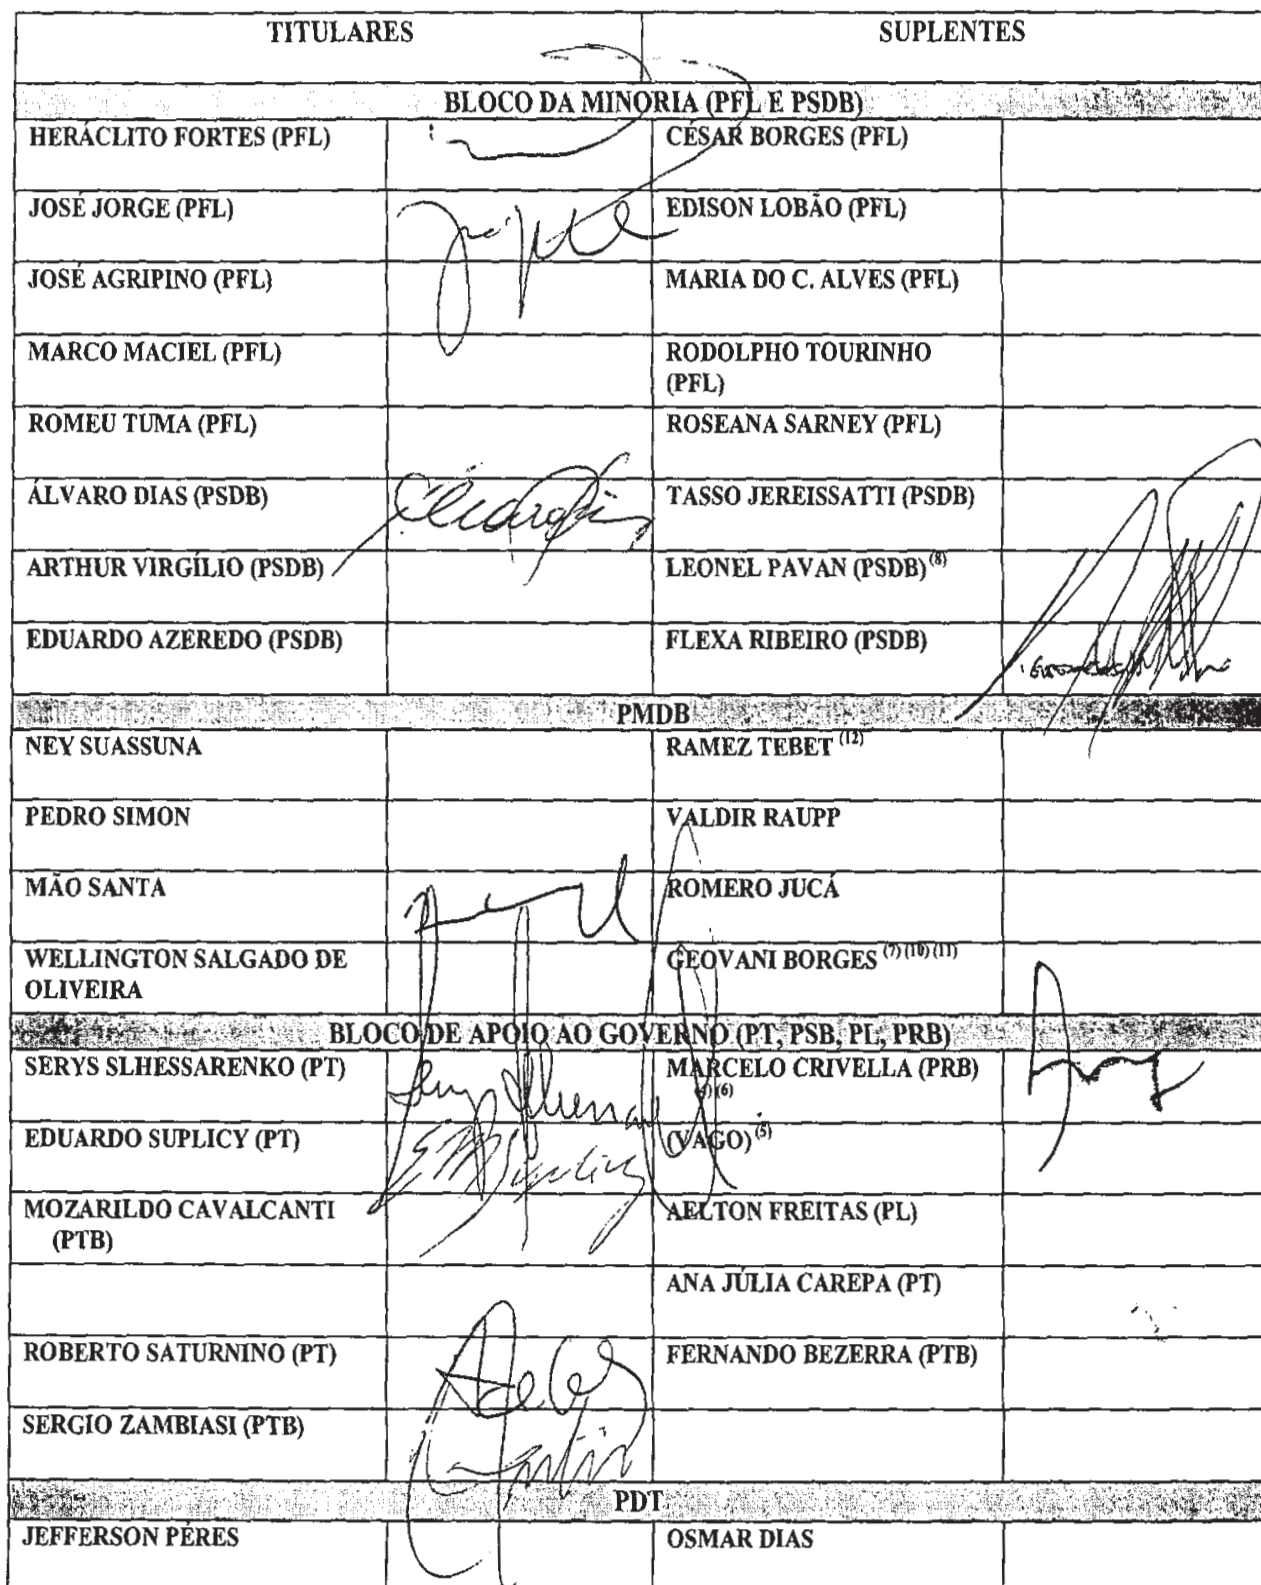 TITULARES SUPLENTES
BLOCO DA MINORIA (PFL E PSDB)
HERÁCLITO FORTES (PFL) CÉSAR BORGES (PFL)
JOSÉ JORGE (PFL) EDISON LOBÃO (PFL)
JOSÉ AGRIPINO (PFL) MARIA DO C. ALVES (PFL)
MARCO MACIEL (PFL) RODOLPHO TOURINHO
(PFL)
ROMEU TUMA (PFL) ROSEANA SARNEY (PFL)
ÁLVARO DIAS (PSDB) TASSO JEREISSATTI (PSDB)
ARTHUR VIRGÍLIO (PSDB) LEONEL PAVAN (PSDB) (8)
EDUARDO AZEREDO (PSDB) FLEXA RIBEIRO (PSDB)
PMDB
NEY SUASSUNA RAMEZ TEBET (12)
PEDRO SIMON VALDIR RAUPP
MÃO SANTA ROMERO JUCÁ
WELLINGTON SALGADO DE GEOVANI BORGES (7) (10) (11)
OLIVEIRA
BLOCO DE APOIO AO GOVERNO (PT, PSB, PL, PRB)
SERYS SLHESSARENKO (PT) MARCELO CRIVELLA (PRB)
(6)
EDUARDO SUPLICY (PT) (VAGO) (5)
MOZARILDO CAVALCANTI AELTON FREITAS (PL)
(PTB)
ANA JÚLIA CAREPA (PT)
ROBERTO SATURNINO (PT) FERNANDO BEZERRA (PTB)
SERGIO ZAMBIASI (PTB)
PDT
JEFFERSON PÉRES OSMAR DIAS